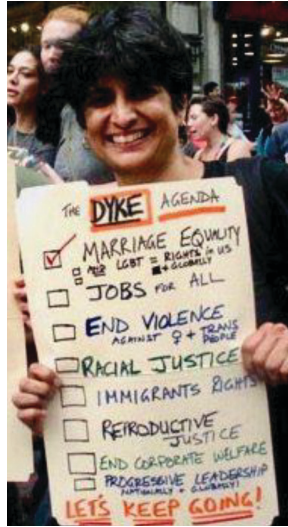 THE DYKE AGENDA
MARRIAGE EQUALITY
LGBT = RIGHTS in US
+ GLOBALLY
JOBS FOR ALL
END VIOLENCE
AGAINST ♀ + TRANS
PEOPLE
RACIAL JUSTICE
IMMIGRANTS RIGHTS
REPRODUCTIVE
JUSTICE
END CORPORATE WELFARE
PROGRESSIVE LEADERSHIP
NATIONALLY + GLOBALLY!
LET'S KEEP GOING!